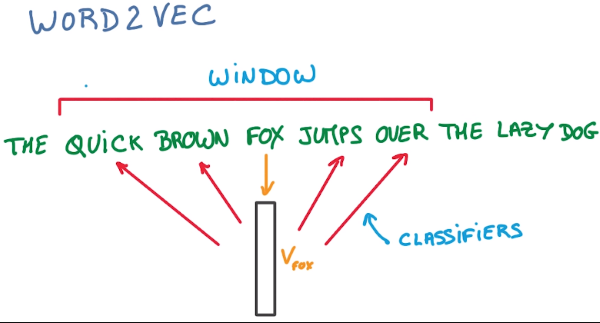 WORD2VEC
WINDOW
THE QUICK BROWN FOX JUMPS OVER THE LAZY DOG
VFOX
CLASSIFIERS